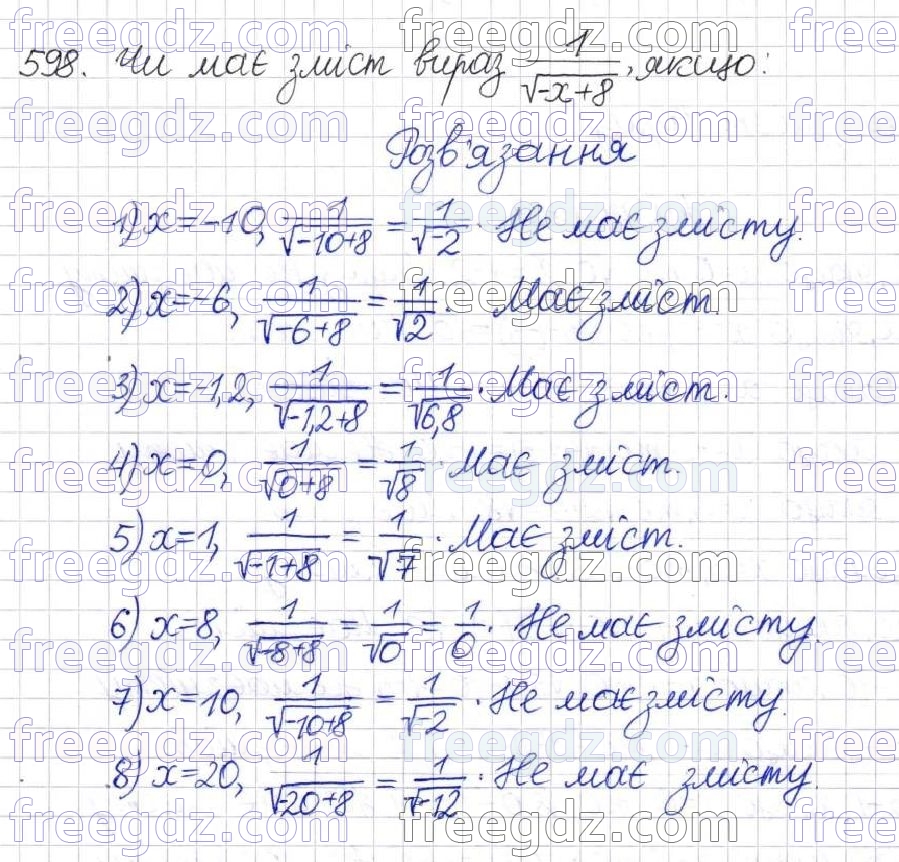 598. Чи має зміст вираз 1/√(-x+8), якщо:
Розв'язання
1) x=-10, 1/√(-10+8) = 1/√(-2). Не має змісту.
2) x=-6, 1/√(-6+8) = 1/√2. Має зміст.
3) x=-1,2, 1/√(-1,2+8) = 1/√6,8. Має зміст.
4) x=0, 1/√(0+8) = 1/√8. Має зміст.
5) x=1, 1/√(-1+8) = 1/√7. Має зміст.
6) x=8, 1/√(-8+8) = 1/√0 = 1/0. Не має змісту.
7) x=10, 1/√(-10+8) = 1/√(-2). Не має змісту.
8) x=20, 1/√(-20+8) = 1/√(-12). Не має змісту.
freegdz.com